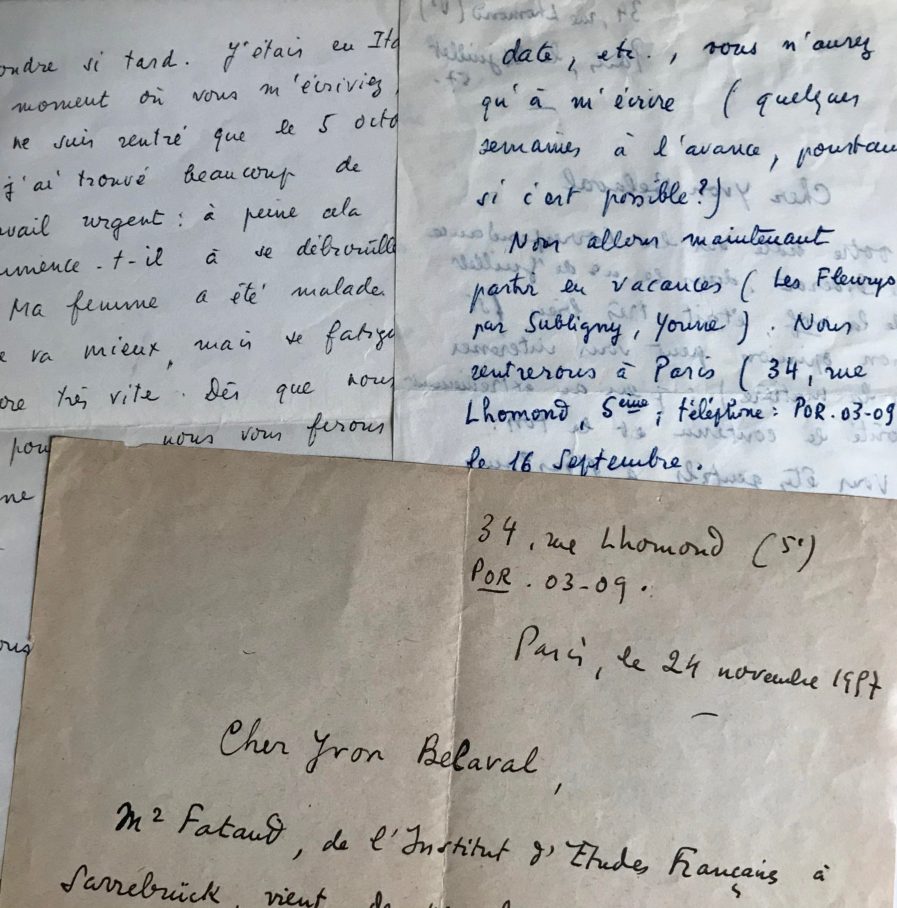 ondre si tard. J'étais en Ita
moment où vous m'écriviez,
ne suis rentré que le 5 octo
j'ai trouvé beaucoup de
vail urgent : à peine cela
mmence-t-il à se débrouille
Ma femme a été malade.
e va mieux, mais se fatigu
ore très vite. Dès que nous
pou nous vous ferons
ne
ous
date, etc., vous n'aurez
qu'à m'écrire (quelques
semaines à l'avance, pourtan
si c'est possible?)
Nous allons maintenant
partir en vacances (Les Fleurys
par Subligny, Yonne). Nous
rentrerons à Paris (34, rue
Lhomond, 5ème; téléphone : POR. 03-09
le 16 Septembre.
34, rue Lhomond (5e)
POR. 03-09.
Paris, le 24 novembre 1957
Cher Yvon Belaval,
Mr Fataud, de l'Institut d'Etudes Français à
Sarrebrück, vient de